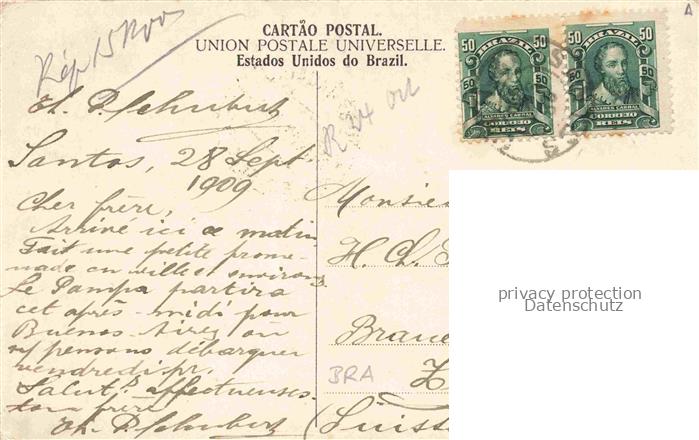 Rép 15 Nov
CARTÃO POSTAL.
UNION POSTALE UNIVERSELLE.
Estados Unidos do Brazil.
A
50 BRAZIL 50
50 50
ALVARES CABRAL
CORREIO
REIS
50 BRAZIL 50
50 50
ALVARES CABRAL
CORREIO
REIS
Th. Schubert
R 24 Oct
Santos, 28 Sept.
1909
Cher frère,
Arrivé ici ce matin
Fait une petite prome-
nade en ville & environs
Le Pampa partira
cet après-midi pour
Buenos-Aires où
n/ pensons débarquer
vendredi pr.
Salut affectueuses
ton frère
Th. Schubert
Monsieur
H. Ch.
BRA
(Suisse
privacy protection
Datenschutz